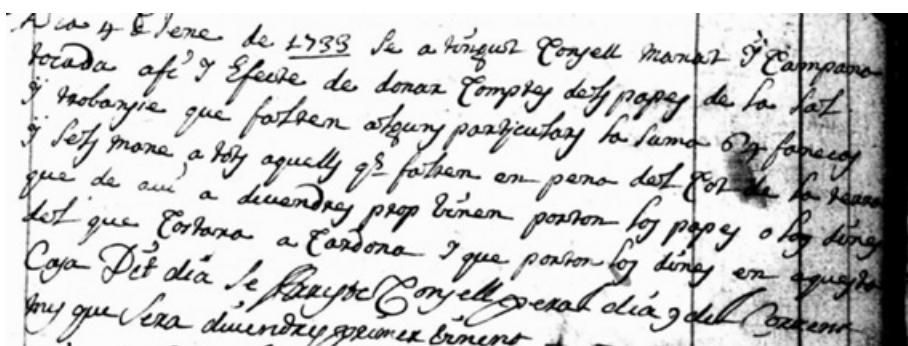 Dia 4 de Jene de 1733 se a tingut Consell manat ÿ Campana
tocada afi y Efecte de donar Comptes dels papes de la sal
ÿ trobansie que falten alguns particulars la suma 64 faneces
ÿ sels mane a tots aquells q̃ falten en pena del Cot de la terra
que de aui a diuendres prop binen porton los papes o los dines
del que Costara a Cardona y que porton los dines en aquesta
Casa Dit dia se Consell peral dia 9 del Corrent
mes que sera diuendres primer binent